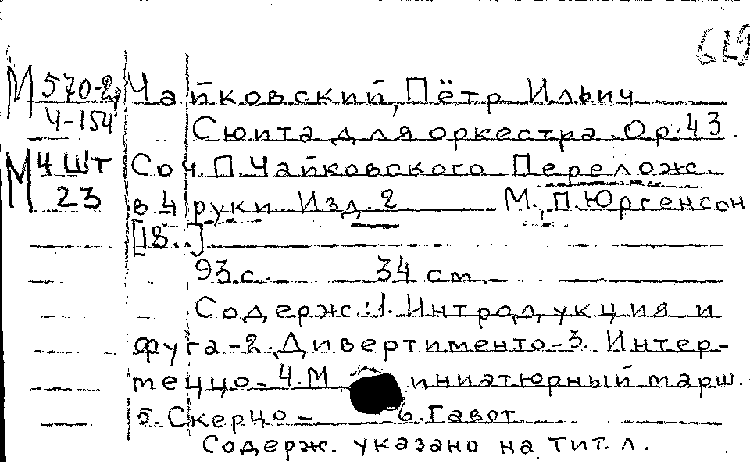 619
М 570-2, Чайковский, Пётр Ильич
Ч-154 Сюита для оркестра. Ор. 43.
М 4 шт Соч. П. Чайковского Перелож.
23 в 4 руки Изд. 2 М., П. Юргенсон
[18..]
93 с. 34 см.
Содерж.: 1. Интродукция и
фуга-2. Дивертименто-3. Интер-
меццо-4. М иниатюрный марш.
5. Скерцо- 6. Гавот
Содерж. указано на тит. л.